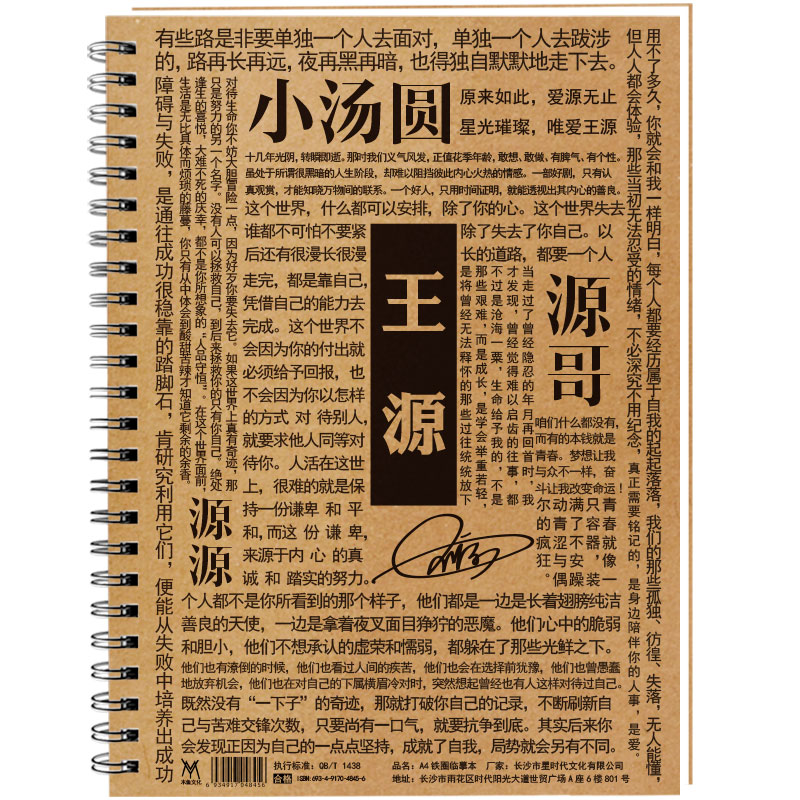 有些路是非要单独一个人去面对，单独一个人去跋涉
的，路再长再远，夜再黑再暗，也得独自默默地走下去。
用不了多久，你就会和我一样明白，每个人都要经历属于自我的起起落落，我们的那些孤独、彷徨、失落，无人能懂，
但人人都会体验，那些当初无法忍受的情绪，不必深究不用纪念，真正需要铭记的，是身边陪伴你的人事，是爱。
对待生命你不妨大胆冒险一点，因为好歹你要失去它。如果这世界上真有奇迹，那
只是努力的另一个名字。没有人可以拯救自己，到后来拯救你的只有你自己。绝处
逢生的喜悦，大难不死的庆幸，都不是你所想象的“人品守恒”。在这个世界面前，
生活是无比具体而烦琐的藤蔓，你只有从中体会到酸甜苦辣才知道它剩余的余香。
障碍与失败，是通往成功很稳靠的踏脚石，肯研究利用它们，便能从失败中培养出成功
小汤圆
原来如此，爱源无止
星光璀璨，唯爱王源
十几年光阴，转瞬即逝。那时我们义气风发，正值花季年龄，敢想、敢做、有脾气、有个性。
虽处于所谓很黑暗的人生阶段，却难以阻挡彼此内心火热的情感。一部好剧，只有认
真观赏，才能知晓万物间的联系。一个好人，只用时间证明，就能透视出其内心的善良。
这个世界，什么都可以安排，除了你的心。这个世界失去
谁都不可怕不要紧
除了失去了你自己。以
后还有很漫长很漫
长的道路，都要一个人
走完，都是靠自己，
凭借自己的能力去
完成。这个世界不
会因为你的付出就
必须给予回报，也
不会因为你以怎样
的方式 对 待别人，
就要求他人同等对
待你。人活在这世
上，很难的就是保
持一份谦卑 和 平
和，而这 份 谦 卑，
来源于内 心 的真
诚 和 踏实的努力。
王源
当走过了曾经隐忍的年月再回首时，我
才发现，曾经觉得难以启齿的往事，都
不过是沧海一粟，生命给予我的，不是
那些艰难，而是成长，是学会举重若轻，
是将曾经无法释怀的那些过往统统放下
源哥
咱们什么都没有，
而有的本钱就是
青春。梦想让我
与众不一样，奋
斗让我改变命运！
青春就像一
只容器，装
满了不安躁
动青涩与偶
尔的疯狂。
源源
个人都不是你所看到的那个样子，他们都是一边是长着翅膀纯洁
善良的天使，一边是拿着夜叉面目狰狞的恶魔。他们心中的脆弱
和胆小，他们不想承认的虚荣和懦弱，都躲在了那些光鲜之下。
他们也有潦倒的时候，他们也看过人间的疾苦，他们也会在选择前犹豫，他们也曾愚蠢
地放弃机会，他们也在对自己的下属横眉冷对时，突然想起曾经也有人这样对待过自己。
既然没有“一下子”的奇迹，那就打破你自己的记录，不断刷新自
己与苦难交锋次数，只要尚有一口气，就要抗争到底。其实后来你
会发现正因为自己的一点点坚持，成就了自我，局势就会另有不同。
木鱼文化
6 934917 048456
执行标准：QB/T 1438
合格 ISBN: 693-4-9170-4845-6
品名：A4 铁圈临摹本 厂家：长沙市星时代文化有限公司
地址：长沙市雨花区时代阳光大道世贸广场A座6楼801号